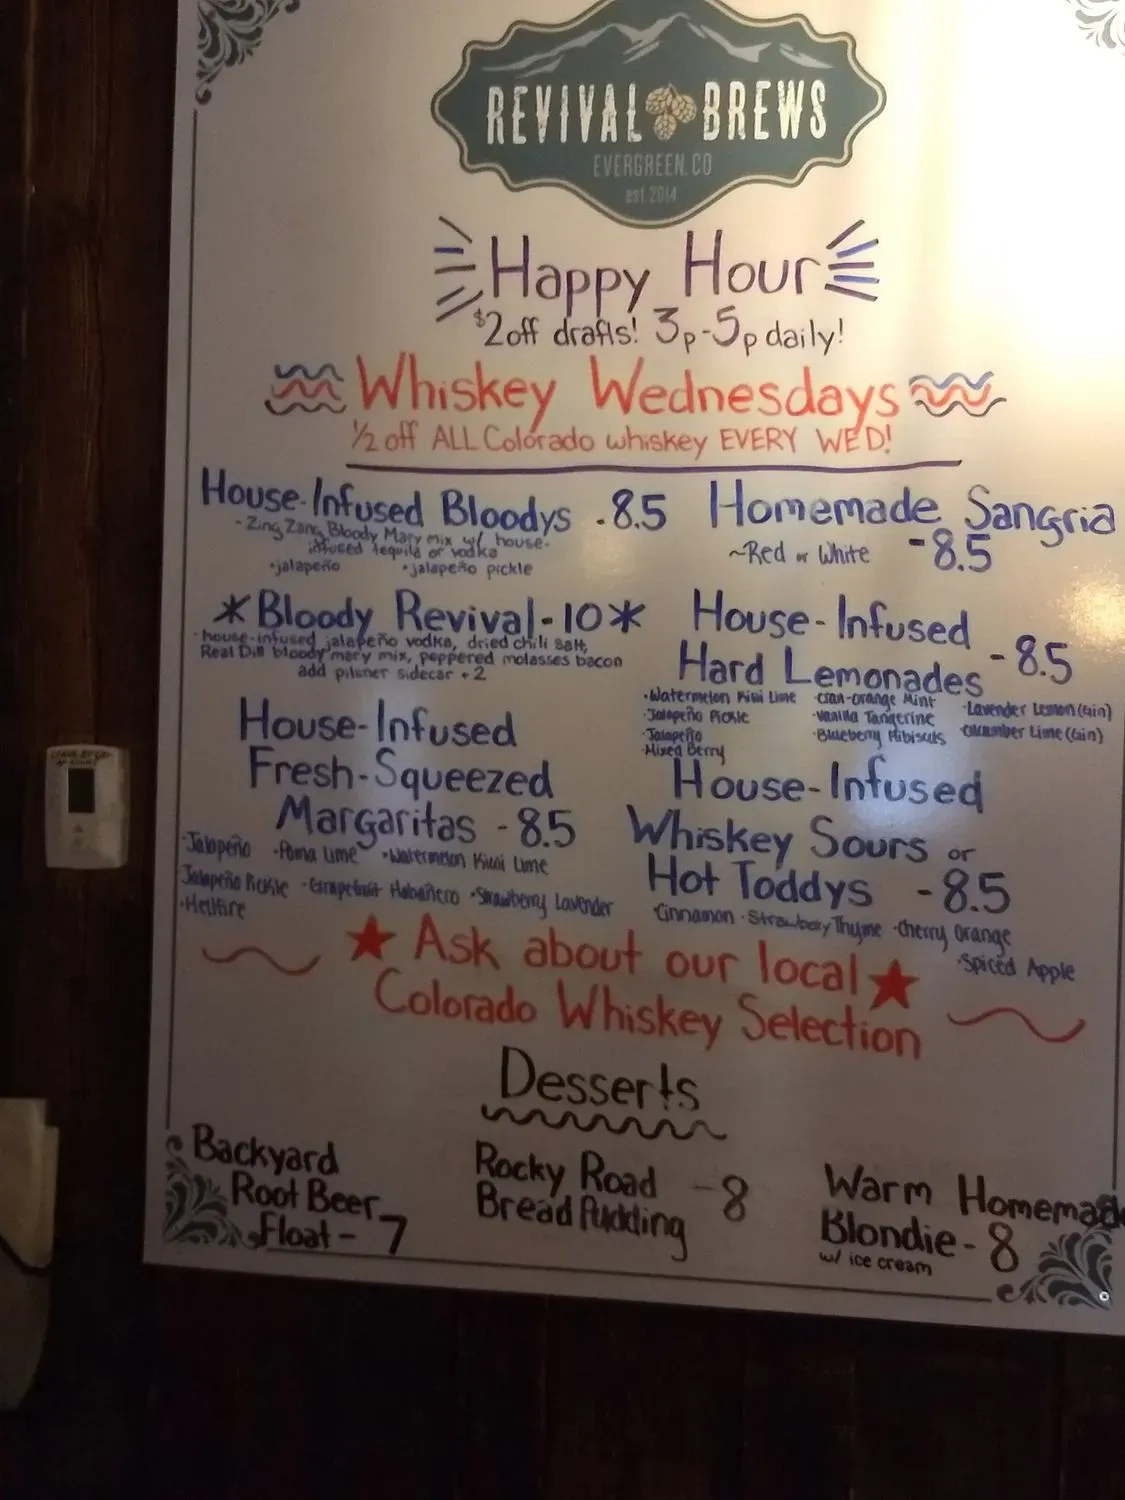 REVIVAL BREWS
EVERGREEN, CO
est 2014
Happy Hour
$2 off drafts! 3p-5p daily!
Whiskey Wednesdays
1/2 off ALL Colorado whiskey EVERY WED!
House-Infused Bloodys - 8.5
- Zing Zang Bloody Mary mix w/ house-
infused tequila or vodka
•jalapeño •jalapeño pickle
*Bloody Revival-10*
•house-infused jalapeño vodka, dried chili salt,
Real Dill bloody mary mix, peppered molasses bacon
add pilsner sidecar +2
House-Infused
Fresh-Squeezed
Margaritas - 8.5
•Jalapeño •Poma Lime •Watermelon Kiwi Lime
•Jalapeño Pickle •Grapefruit Habañero •Strawberry Lavender
•Hellfire
Homemade Sangria
~Red or White -8.5
House-Infused
Hard Lemonades - 8.5
•Watermelon Kiwi Lime •Cran-Orange Mint •Lavender Lemon (Gin)
•Jalapeño Pickle •Vanilla Tangerine •Cucumber Lime (Gin)
•Jalapeño •Blueberry Hibiscus
•Mixed Berry
House-Infused
Whiskey Sours or
Hot Toddys - 8.5
•Cinnamon •Strawberry Thyme •Cherry Orange
•Spiced Apple
★ Ask about our local ★
Colorado Whiskey Selection
Desserts
Backyard
Root Beer
Float - 7
Rocky Road
Bread Pudding - 8
Warm Homemade
Blondie - 8
w/ ice cream